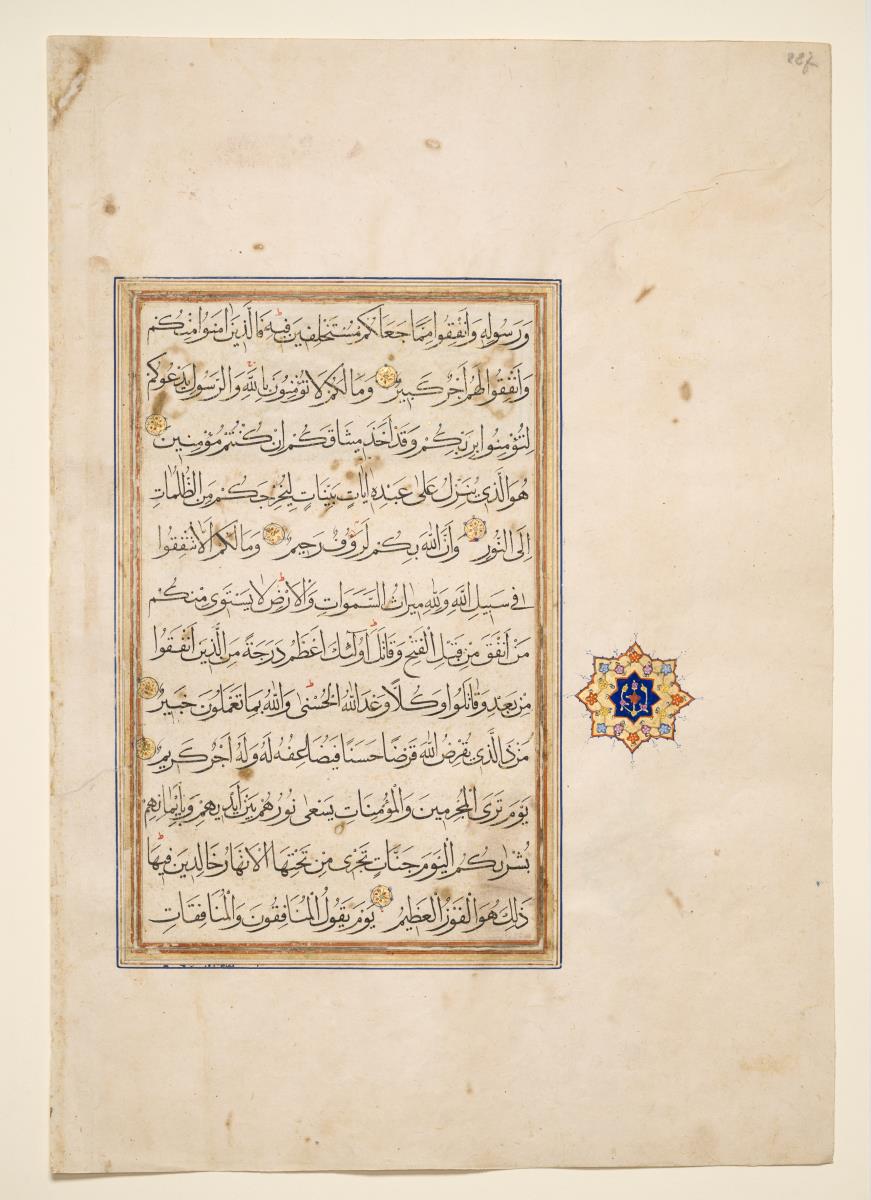 وَرَسُولِهِ وَأَنْفِقُوا مِمَّا جَعَلَكُمْ مُسْتَخْلَفِينَ فِيهِ فَالَّذِينَ اٰمَنُوا مِنْكُمْ
وَأَنْفَقُوا لَهُمْ أَجْرٌ كَبِيرٌ وَمَا لَكُمْ لَا تُؤْمِنُونَ بِاللّٰهِ وَالرَّسُولُ يَدْعُوكُمْ
لِتُؤْمِنُوا بِرَبِّكُمْ وَقَدْ أَخَذَ مِيثَاقَكُمْ إِنْ كُنْتُمْ مُؤْمِنِينَ
هُوَ الَّذِي يُنَزِّلُ عَلٰى عَبْدِهِ اٰيَاتٍ بَيِّنَاتٍ لِيُخْرِجَكُمْ مِنَ الظُّلُمَاتِ
إِلَى النُّورِ وَإِنَّ اللّٰهَ بِكُمْ لَرَؤُفٌ رَحِيمٌ وَمَا لَكُمْ أَلَّا تُنْفِقُوا
فِي سَبِيلِ اللّٰهِ وَلِلّٰهِ مِيرَاثُ السَّمٰوَاتِ وَالْأَرْضِ لَا يَسْتَوِي مِنْكُمْ
مَنْ أَنْفَقَ مِنْ قَبْلِ الْفَتْحِ وَقَاتَلَ أُولٰئِكَ أَعْظَمُ دَرَجَةً مِنَ الَّذِينَ أَنْفَقُوا
مِنْ بَعْدُ وَقَاتَلُوا وَكُلًّا وَعَدَ اللّٰهُ الْحُسْنٰى وَاللّٰهُ بِمَا تَعْمَلُونَ خَبِيرٌ
مَنْ ذَا الَّذِي يُقْرِضُ اللّٰهَ قَرْضًا حَسَنًا فَيُضَاعِفَهُ لَهُ وَلَهُ أَجْرٌ كَرِيمٌ
يَوْمَ تَرَى الْمُؤْمِنِينَ وَالْمُؤْمِنَاتِ يَسْعٰى نُورُهُمْ بَيْنَ أَيْدِيهِمْ وَبِأَيْمَانِهِمْ
بُشْرٰىكُمُ الْيَوْمَ جَنَّاتٌ تَجْرِي مِنْ تَحْتِهَا الْأَنْهَارُ خَالِدِينَ فِيهَا
ذٰلِكَ هُوَ الْفَوْزُ الْعَظِيمُ يَوْمَ يَقُولُ الْمُنَافِقُونَ وَالْمُنَافِقَاتُ